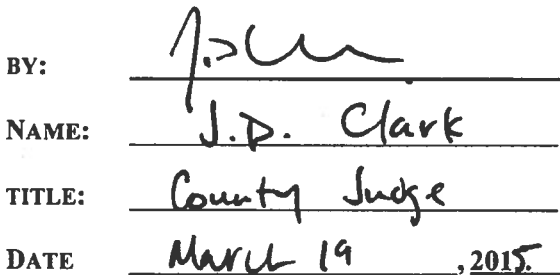 BY:
NAME: J.D. Clark
TITLE: County Judge
DATE March 19, 2015.